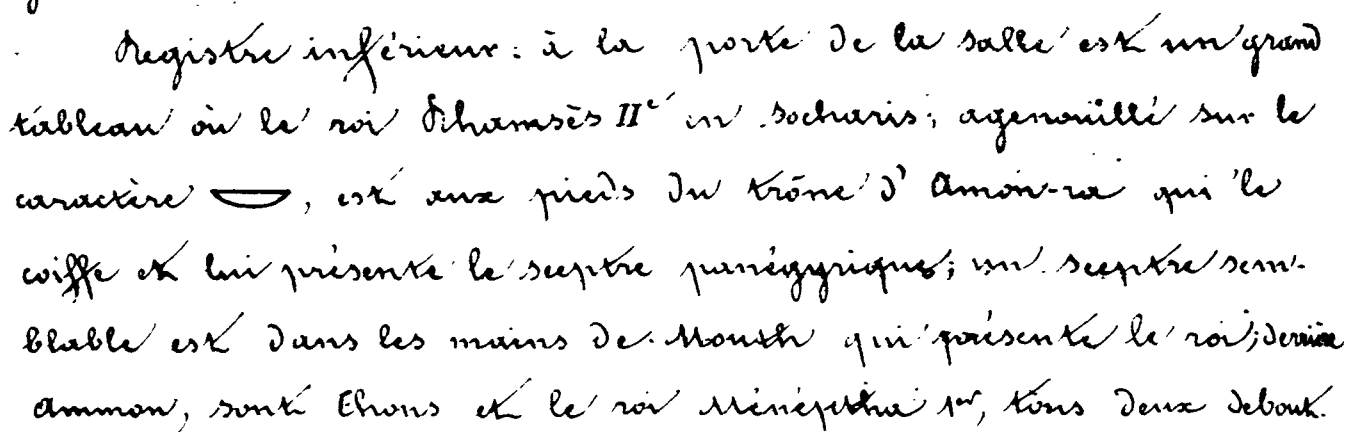 Registre inférieur : à la porte de la salle est un grand
tableau où le roi Rhamsès IIe en Socharis, agenouillé sur le
caractère 𓎟, est aux pieds du trône d'Amon-ra qui le
coiffe et lui présente le sceptre panégyrique; un sceptre sem-
blable est dans les mains de Mouth qui présente le roi; derrière
Ammon, sont Chons et le roi Ménéptha 1er, tous deux debout.